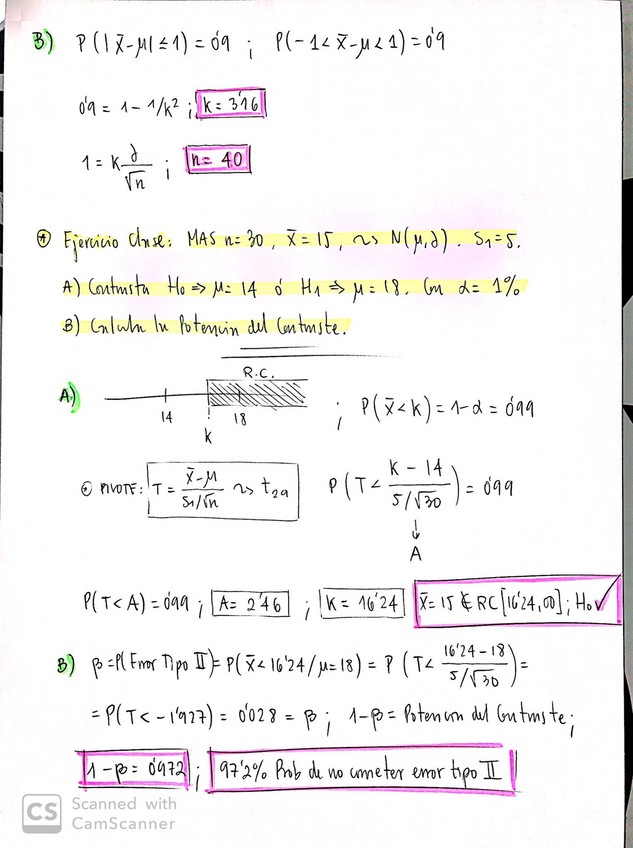 B) P(|x̄-μ| ≤ 1) = 0'9 ; P(-1 < x̄-μ < 1) = 0'9
0'9 = 1 - 1/k² ; k = 3'16
1 = k ∂/√n ; n = 40
* Ejercicio Clase: MAS n=30, x̄=15, ~> N(μ,∂). S₁=5.
A) Contrasta H₀ => μ=14 ó H₁ => μ=18. Con α=1%
B) Calcula la Potencia del Contraste.
R.C.
A) 14 k 18 ; P(x̄<k) = 1-α = 0'99
PIVOTE: T = x̄-μ / S₁/√n ~> t₂₉ P(T < k-14 / 5/√30) = 0'99
↓
A
P(T<A) = 0'99 ; A = 2'46 ; K = 16'24 x̄=15 ∉ RC [16'24,∞) ; H₀ ✓
B) β = P(Error Tipo II) = P(x̄<16'24/μ=18) = P (T < 16'24-18 / 5/√30) =
= P(T < -1'927) = 0'028 = β ; 1-β = Potencia del Contraste ;
1-β = 0'972 ; 97'2% Prob de no cometer error tipo II
CS Scanned with
CamScanner